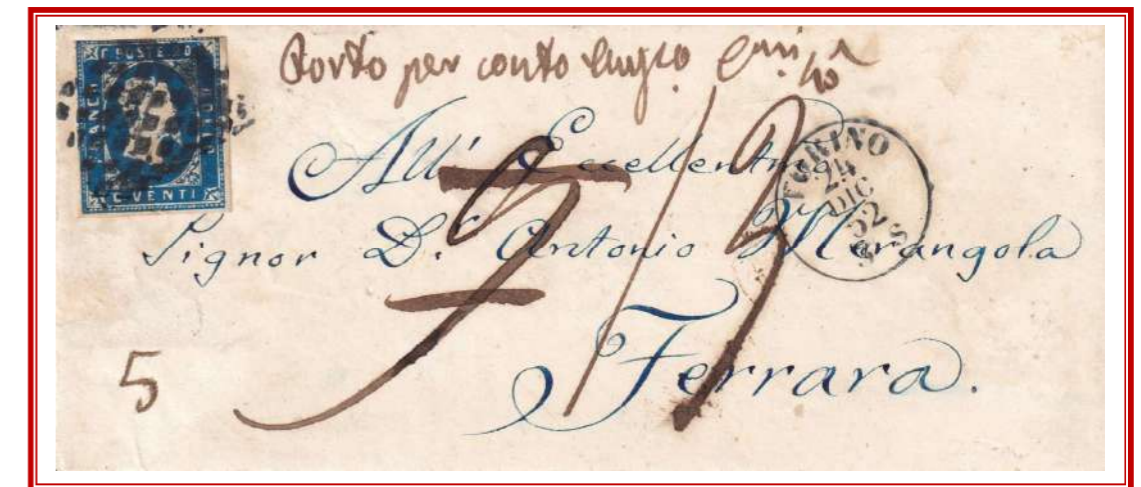 C. POSTE 20
FRANCO
BOLLO
C. VENTI
Porto per conto
All' Eccellentmo
TORINO
24
DIC
52
Signor D. Antonio Marangola
Ferrara.
5